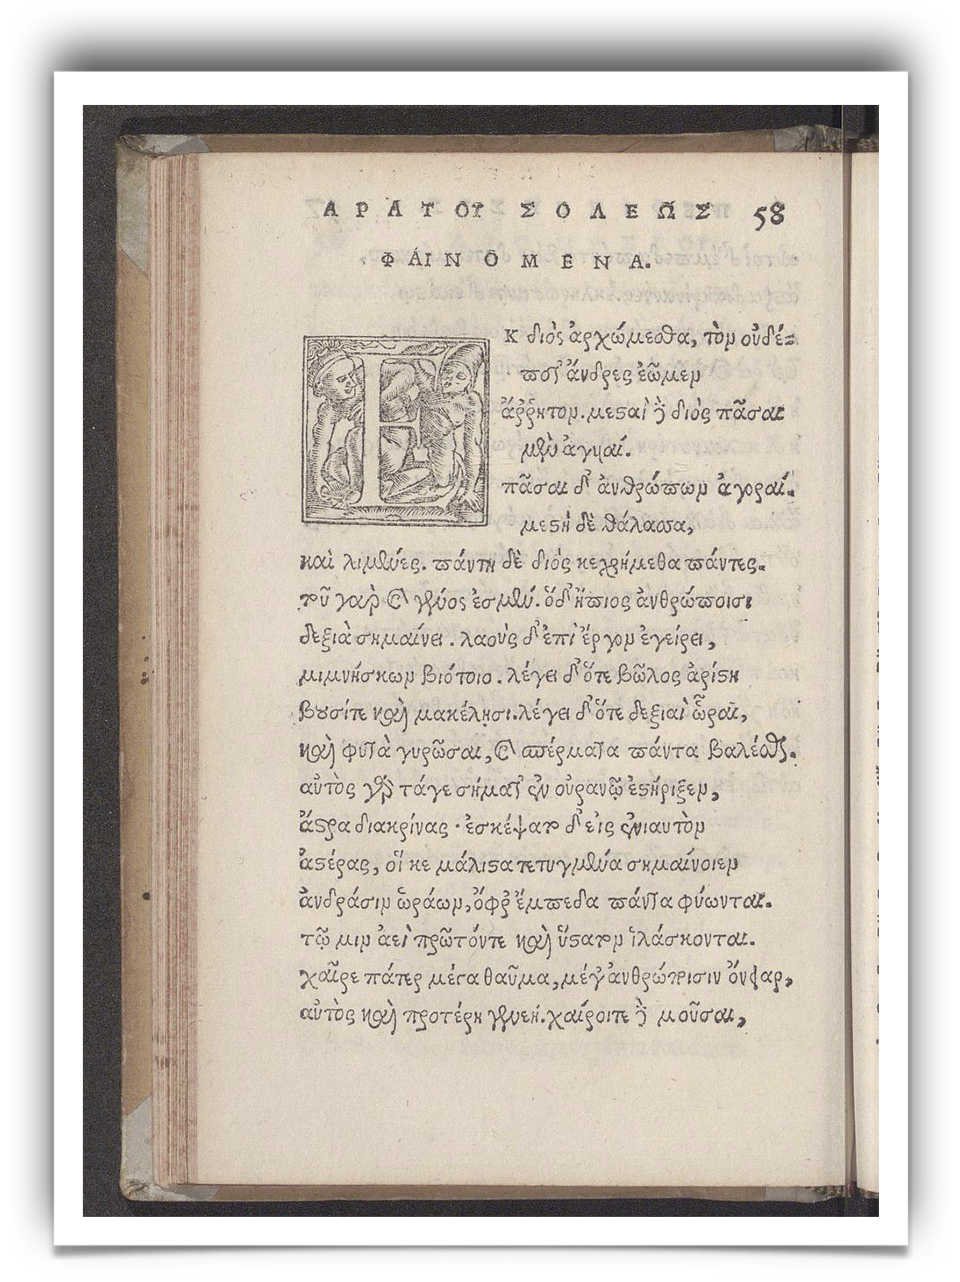 ΑΡΑΤΟΥ ΣΟΛΕΩΣ 58
ΦΑΙΝΟΜΕΝΑ.
Εκ διὸς ἀρχώμεσθα, τὸν οὐδέ-
ποτ' ἄνδρες ἐῶμεν
ἄῤῥητον. μεσαὶ δὲ διὸς πᾶσαι
μὲν ἀγυιαί.
πᾶσαι δ' ἀνθρώπων ἀγοραί.
μεστὴ δὲ θάλασσα,
καὶ λιμένες. πάντη δὲ διὸς κεχρήμεθα πάντες.
τοῦ γὰρ καὶ γένος ἐσμέν. ὁδ' ἤπιος ἀνθρώποισι
δεξιὰ σημαίνει. λαοὺς δ' ἐπὶ ἔργον ἐγείρει,
μιμνήσκων βιότοιο. λέγει δ' ὅτε βῶλος ἀρίστη
βουσίτε καὶ μακέλησι. λέγει δ' ὅτε δεξιαὶ ὧραι,
καὶ φυτὰ γυρῶσαι, καὶ σπέρματα πάντα βαλέσθαι.
αὐτὸς γὰρ τάγε σήματ' ἐν οὐρανῷ ἐστήριξεν,
ἄστρα διακρίνας · ἐσκέψατο δ' εἰς ἐνιαυτὸν
ἀστέρας, οἵ κε μάλιστα τετυγμένα σημαίνοιεν
ἀνδράσιν ὡράων, ὄφρ' ἔμπεδα πάντα φύωνται.
τῷ μιν ἀεὶ πρῶτόντε καὶ ὕστατον ἱλάσκονται.
χαῖρε πάτερ μέγα θαῦμα, μέγ' ἀνθρώποισιν ὄνειαρ,
αὐτὸς καὶ προτέρη γενεή. χαίροιτε δὲ μοῦσαι,